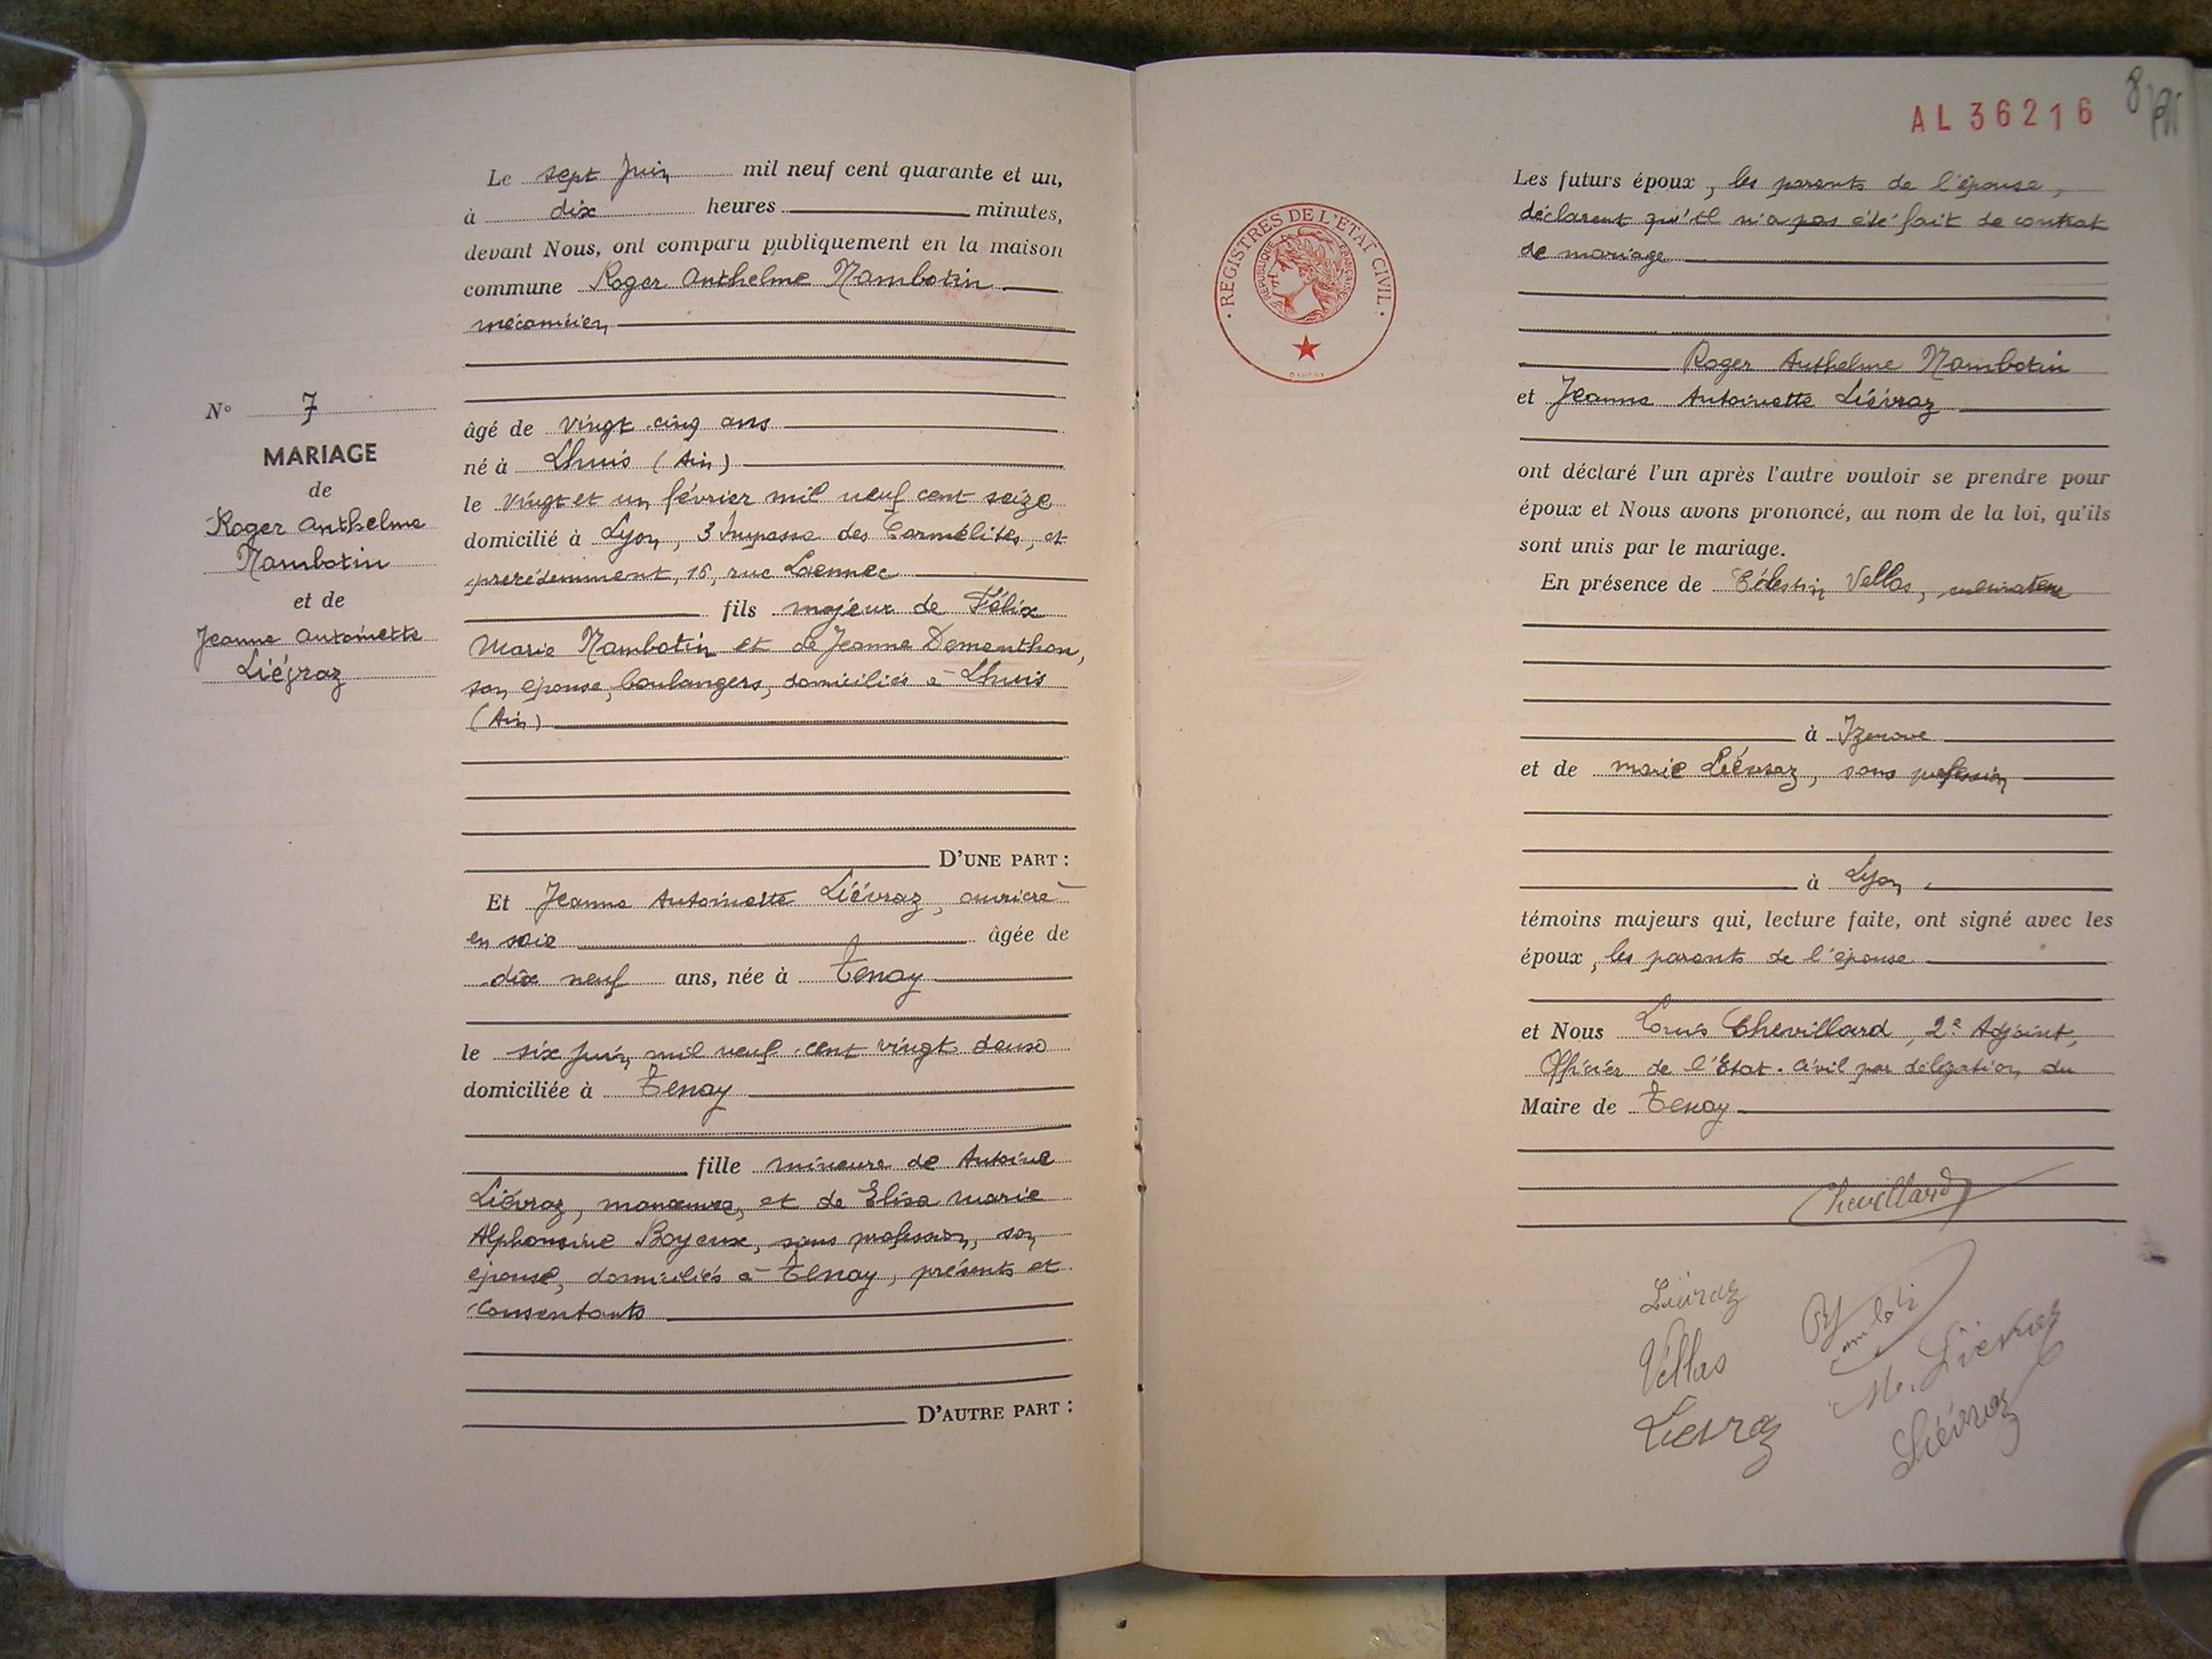 Le sept Juin mil neuf cent quarante et un,
à dix heures minutes,
devant Nous, ont comparu publiquement en la maison
commune Roger Anthelme Nambotin
mécanicien
âgé de vingt cinq ans
né à Lhuis (Ain)
le vingt et un février mil neuf cent seize
domicilié à Lyon, 3 Impasse des Carmélites, et
precédemment, 16, rue Laennec
fils majeur de Félix
Marie Nambotin et de Jeanne Demanthon,
son épouse, boulangers, domiciliés à Lhuis
(Ain)
D'UNE PART :
Et Jeanne Antoinette Liévraz, ouvrière
en soie âgée de
dix neuf ans, née à Tenay
le six Juin mil neuf cent vingt deux
domiciliée à Tenay
fille mineure de Antoine
Liévraz, manœuvre, et de Elisa Marie
Alphonsine Boyeux, sans profession, son
épouse, domiciliés à Tenay, présents et
consentants
D'AUTRE PART :
N° 7
MARIAGE
de
Roger Anthelme
Nambotin
et de
Jeanne Antoinette
Liévraz
AL 36216
8
REGISTRES DE L'ETAT CIVIL
REPUBLIQUE FRANÇAISE
Les futurs époux, les parents de l'épouse,
déclarent qu'il n'a pas été fait de contrat
de mariage
Roger Anthelme Nambotin
et Jeanne Antoinette Liévraz
ont déclaré l'un après l'autre vouloir se prendre pour
époux et Nous avons prononcé, au nom de la loi, qu'ils
sont unis par le mariage.
En présence de Célestin Vellas, cultivateur
à Izenave
et de Marie Liévraz, sans profession
à Lyon,
témoins majeurs qui, lecture faite, ont signé avec les
époux, les parents de l'épouse
et Nous Louis Chevillard, 2e Adjoint,
Officier de l'Etat. Civil par délégation du
Maire de Tenay
Chevillard
Liévraz
Vellas
M. Liévraz
Lievraz
Liévraz